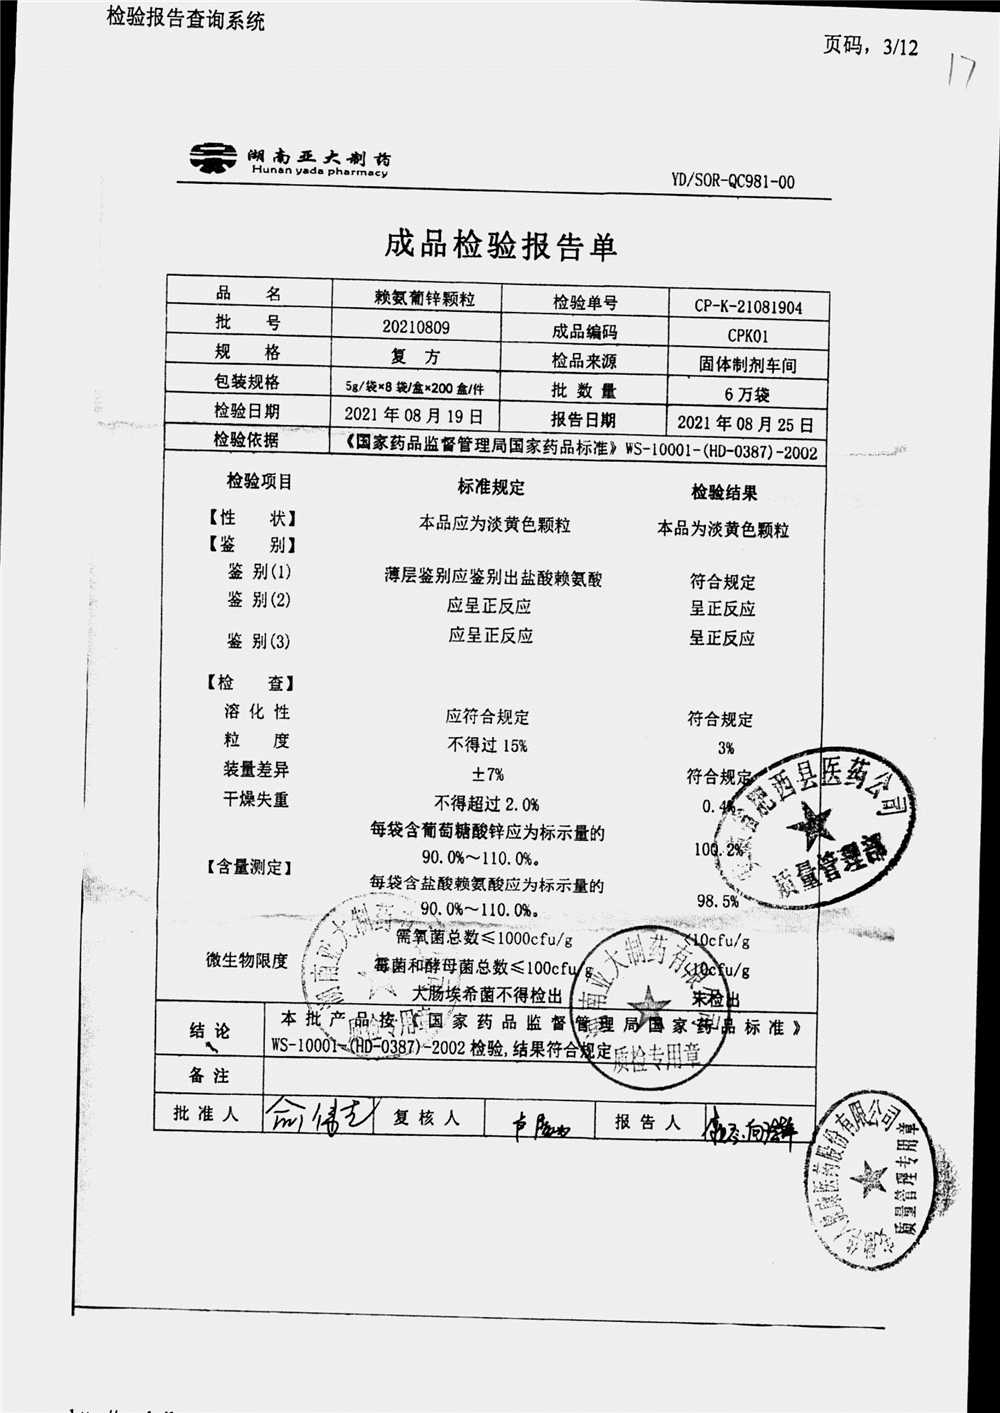 检验报告查询系统
页码，3/12
17
湖南亚大制药
Hunan yada pharmacy
YD/SOR-QC981-00
成品检验报告单
品 名 赖氨葡锌颗粒 检验单号 CP-K-21081904
批 号 20210809 成品编码 CPK01
规 格 复 方 检品来源 固体制剂车间
包装规格 5g/袋×8袋/盒×200盒/件 批 数 量 6万袋
检验日期 2021年08月19日 报告日期 2021年08月25日
检验依据 《国家药品监督管理局国家药品标准》WS-10001-(HD-0387)-2002
检验项目 标准规定 检验结果
【性 状】 本品应为淡黄色颗粒 本品为淡黄色颗粒
【鉴 别】
鉴 别(1) 薄层鉴别应鉴别出盐酸赖氨酸 符合规定
鉴 别(2) 应呈正反应 呈正反应
鉴 别(3) 应呈正反应 呈正反应
【检 查】
溶 化 性 应符合规定 符合规定
粒 度 不得过15% 3%
装量差异 ±7% 符合规定
干燥失重 不得超过2.0% 0.4%
每袋含葡萄糖酸锌应为标示量的
90.0%～110.0%。 100.2%
【含量测定】
每袋含盐酸赖氨酸应为标示量的
90.0%～110.0%。 98.5%
需氧菌总数≤1000cfu/g <10cfu/g
微生物限度 霉菌和酵母菌总数≤100cfu/g <10cfu/g
大肠埃希菌不得检出 未检出
结 论 本批产品按《国家药品监督管理局国家药品标准》
WS-10001-(HD-0387)-2002检验,结果符合规定
备 注
批 准 人 复 核 人 报 告 人
省肥西县医药公司
质量管
湖南亚大制药
质检专用章
湖南亚大制药有限公司
质检专用章
医药股份有限公司
质量管理专用章